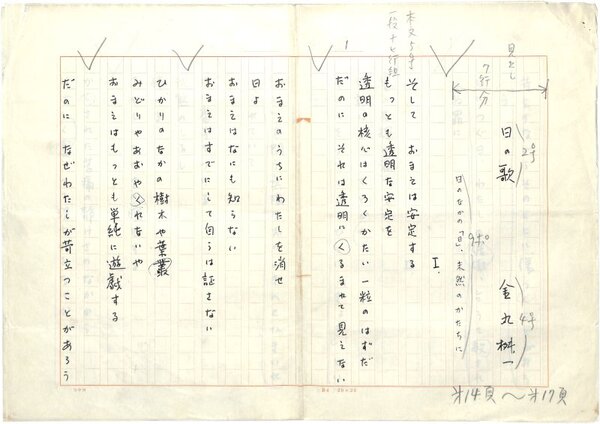 見出し
7行分
日の歌
2号
金丸桝一
4号
日のなかの「日」、未然のかたちに
9ポ
第14頁〜第17頁
本文5号
一段十七行組
1
I.
そして おまえは安定する
もっとも透明な安定を
透明の核心はくろくかたい一粒のはずだ
だのに それは透明にくるませて見えない
おまえのうちにわたしを消せ
日よ
おまえはなにも知らない
おまえはすでにして自らは証さない
ひかりのなかの樹木や葉叢
みどりやあおやくれないや
おまえはもっとも単純に遊戯する
だのに なぜわたしが苛立つことがあろう